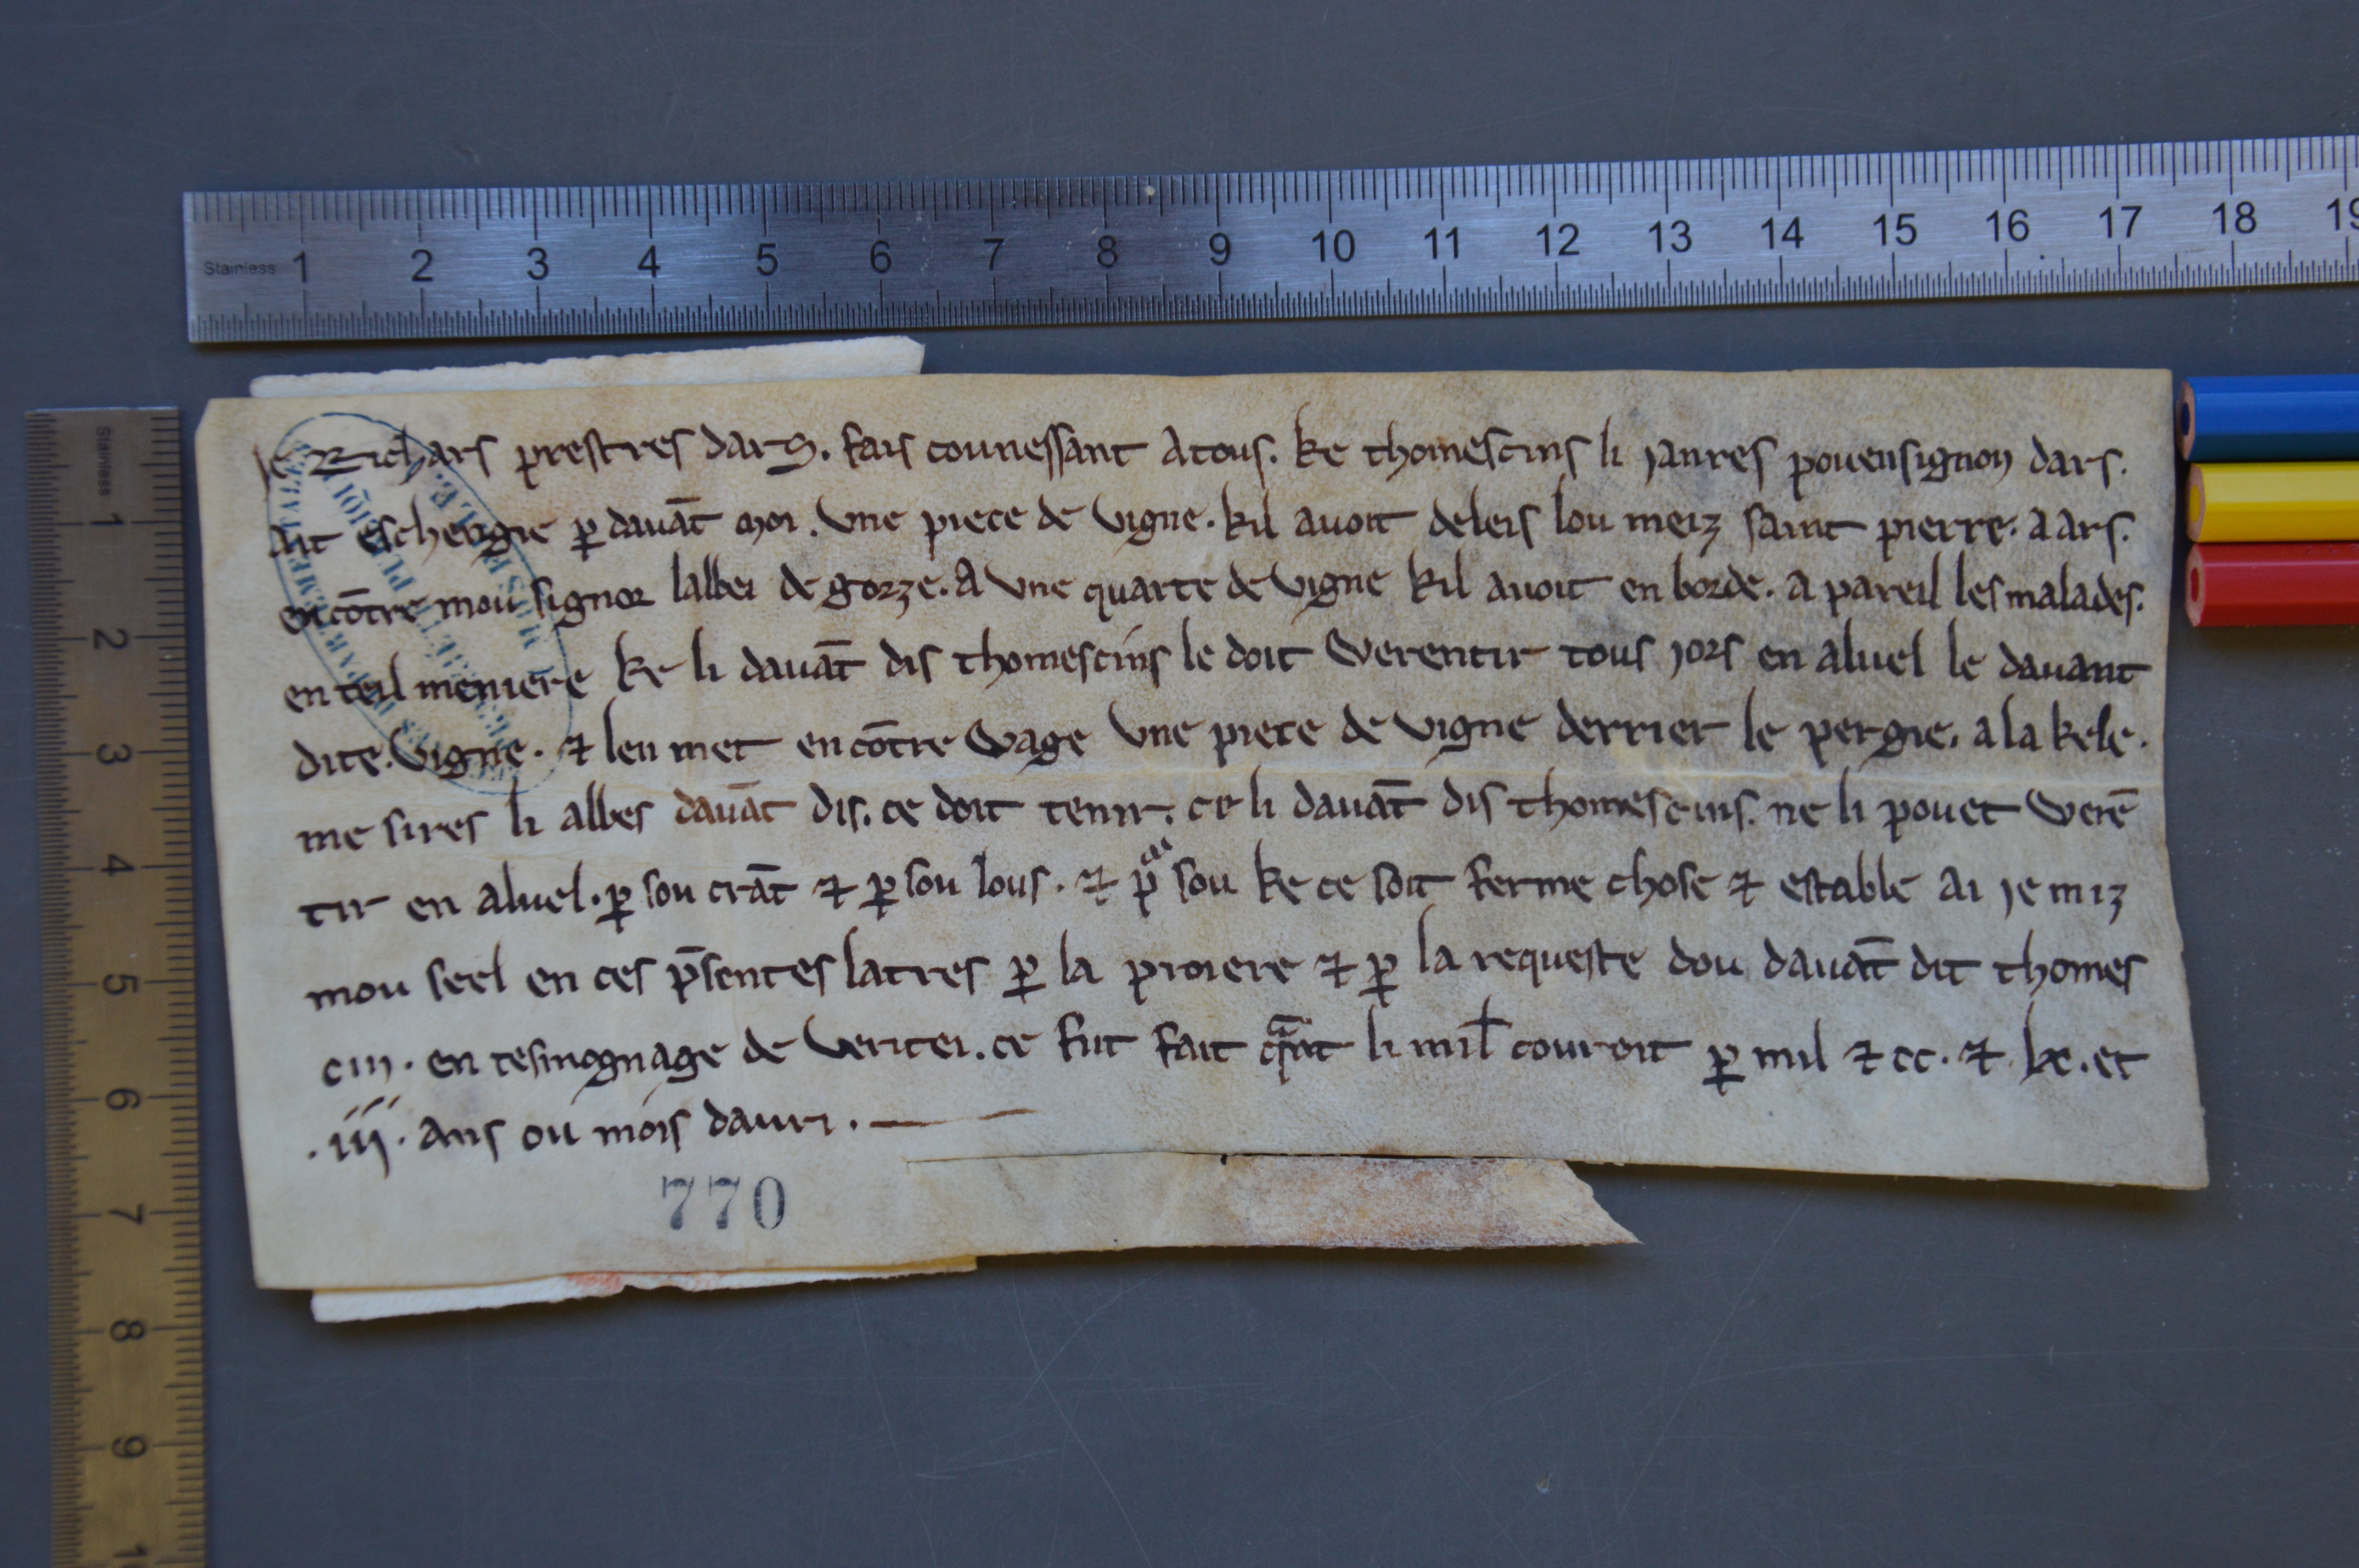 Stainless 1 2 3 4 5 6 7 8 9 10 11 12 13 14 15 16 17 18 19
Stainless 1 2 3 4 5 6 7 8 9
Je Richars prestres dars. fais counessant a tous. ke thomescins li janres pouensignon dars.
Ait eschengie ꝑ dauāt moi. vne piece de vigne. kil auoit deleis lou meiz saint pierre. a ars.
encōtre mou signor labbei de gorze. A vne quarte de vigne kil auoit en borde. a pareil les malades.
en teil meniere ke li dauāt dis thomescins le doit werentir tous jors en aluel le dauant
dite. vigne. ⁊ len met encōtre wage vne piece de vigne derrier le pergie. a la kele.
me sires li abbes dauāt dis. ce doit tenir. ce li dauāt dis thomescins. ne li pouet werē
tir en aluel. ꝑ sou crāt ⁊ ꝑ sou lous. ⁊ pᵃ sou ke ce soit ferme chose ⁊ estable ai je miz
mou seel en ces p̄sentes latres ꝑ la proiere ⁊ ꝑ la requeste dou dauāt dit thomes
cin. en tesmognage de veritei. ce fut fait li mil̵ couroit ꝑ mil ⁊ cc. ⁊ lx. et
.iij. ans ou mois dauri.
770